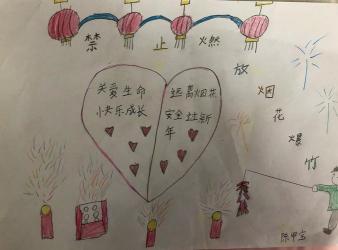 禁止燃放烟花爆竹
关爱生命
小快乐成长
远离烟花
安全过新
年